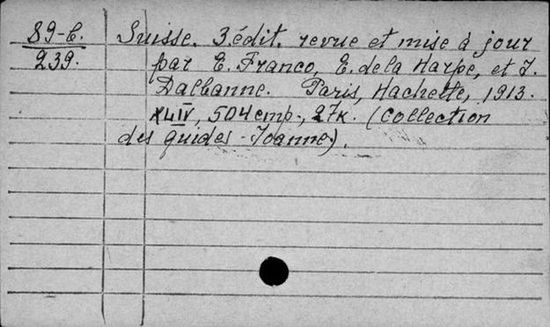 89-б.
239.
Suisse. 3.édit. revue et mise à jour
par E. Franco, E. de la Harpe, et J.
Dalbanne. Paris, Hachette, 1913.
XLIV, 504 стр., 27к. (Collection
des guides-Joanne).